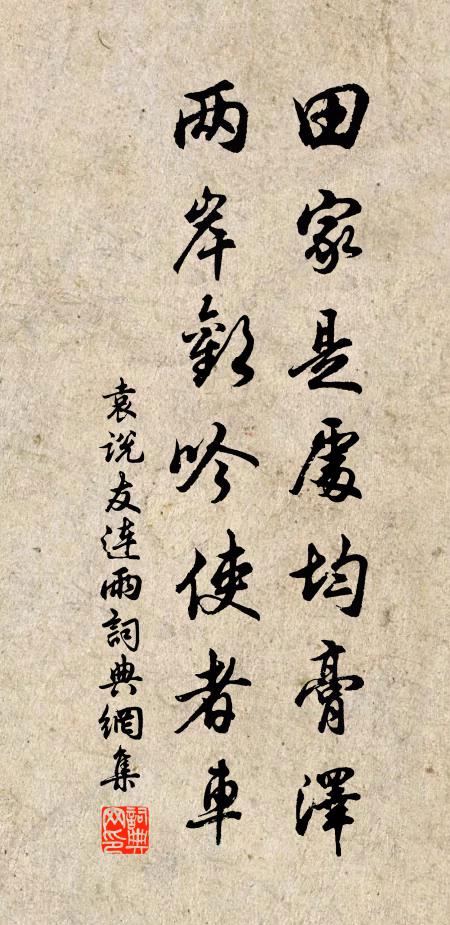 田家是處均膏澤
两岸歡吟使者車
袁说友连雨詞典網集
詞典网印